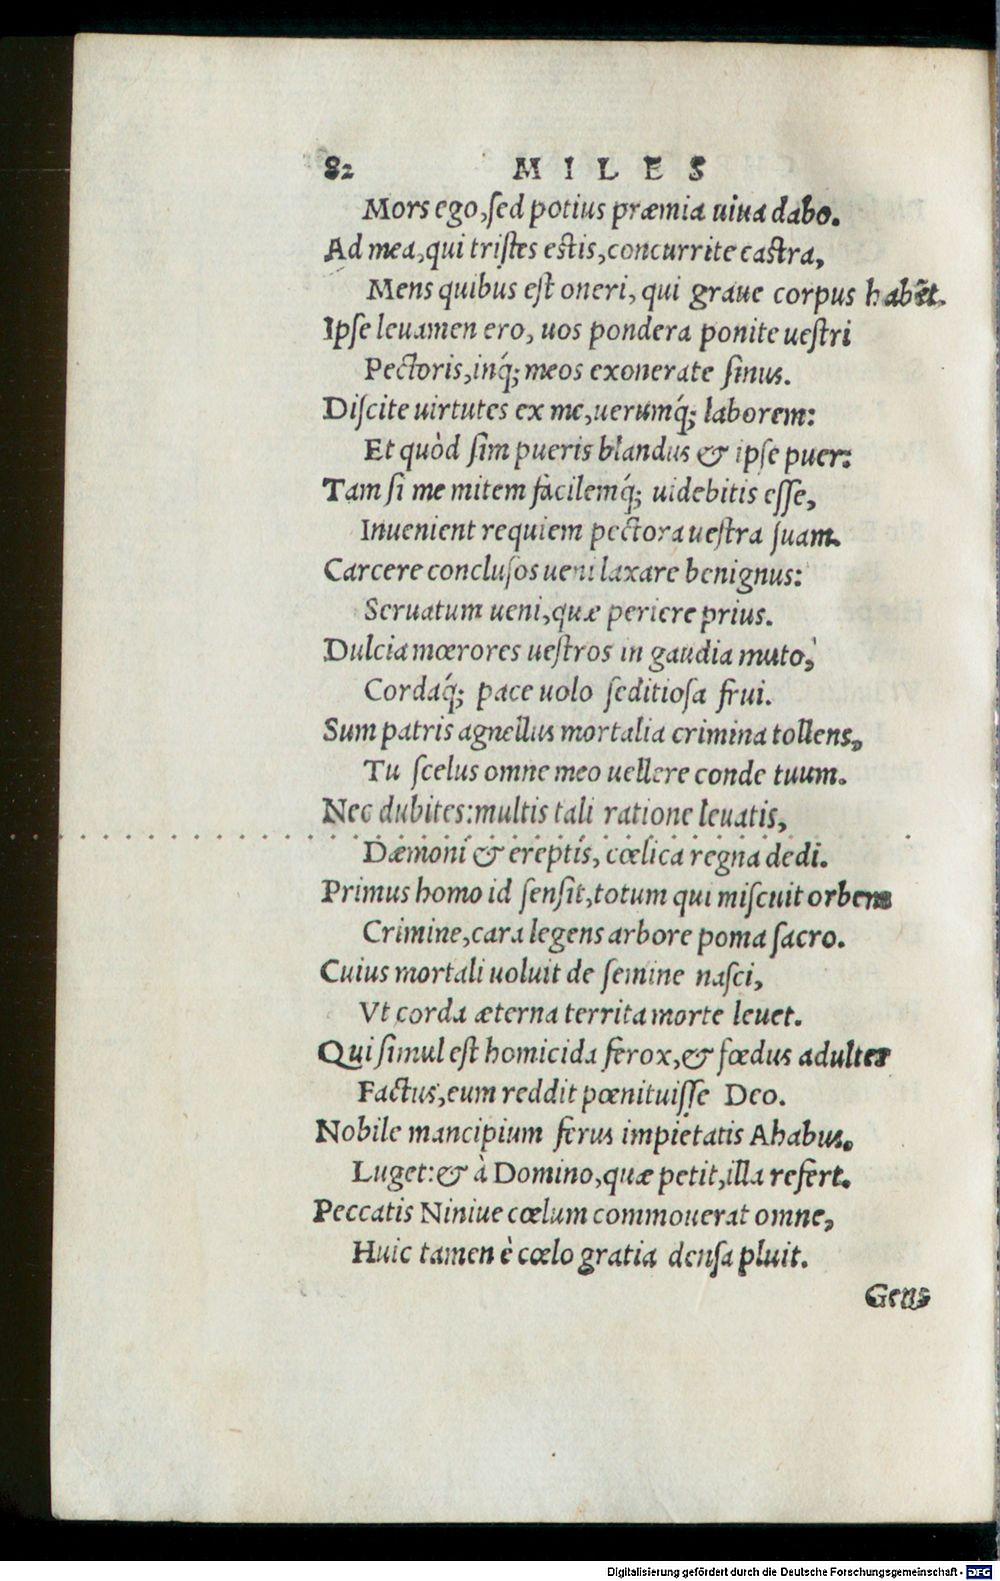 82 MILES
Mors ego, sed potius præmia uiua dabo.
Ad mea, qui tristes estis, concurrite castra,
Mens quibus est oneri, qui graue corpus habēt.
Ipse leuamen ero, uos pondera ponite uestri
Pectoris, inq́; meos exonerate sinus.
Discite uirtutes ex me, uerumq́; laborem:
Et quòd sim pueris blandus & ipse puer:
Tam si me mitem facilemq́; uidebitis esse,
Inuenient requiem pectora uestra suam.
Carcere conclusos ueni laxare benignus:
Seruatum ueni, quæ periere prius.
Dulcia mœrores uestros in gaudia muto,
Cordaq́; pace uolo seditiosa frui.
Sum patris agnellus mortalia crimina tollens,
Tu scelus omne meo uellere conde tuum.
Nec dubites: multis tali ratione leuatis,
Dæmoni & ereptis, cœlica regna dedi.
Primus homo id sensit, totum qui miscuit orbem
Crimine, cara legens arbore poma sacro.
Cuius mortali uoluit de semine nasci,
Vt corda æterna territa morte leuet.
Qui simul est homicida ferox, & fœdus adulter
Factus, eum reddit pœnituisse Deo.
Nobile mancipium ferus impietatis Ahabus.
Luget: & à Domino, quæ petit, illa refert.
Peccatis Niniue cœlum commouerat omne,
Huic tamen è cœlo gratia densa pluit.
Gens
Digitalisierung gefördert durch die Deutsche Forschungsgemeinschaft - DFG